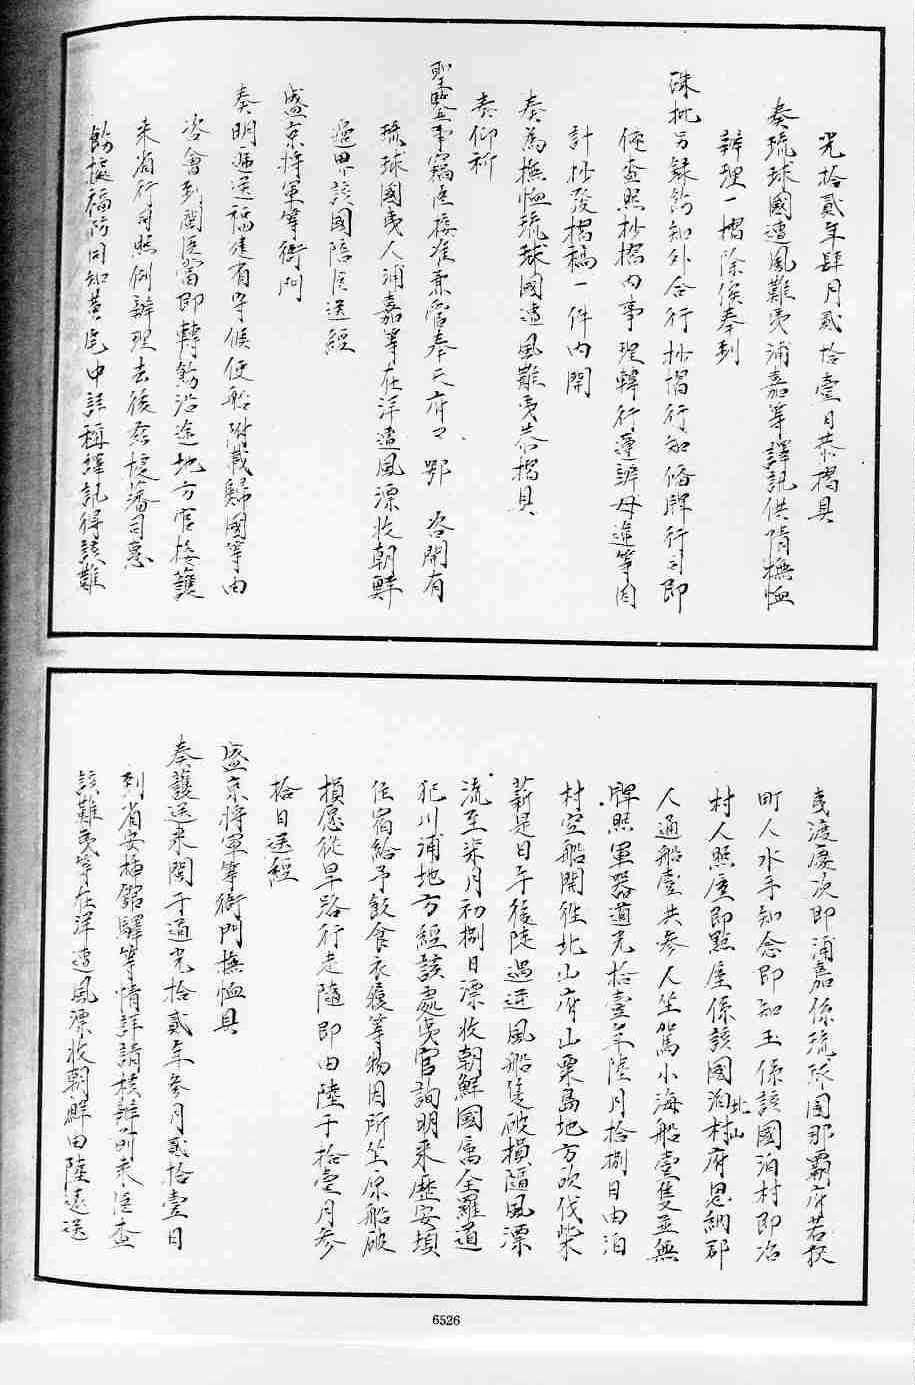 光拾貳年肆月貳拾壹日恭摺具
奏琉球國遭風難夷浦嘉等譯訊供情撫恤
辦理一摺除俟奉到
硃批另錄飭知外合行抄摺行知備牌行司即
便查照抄摺內事理轉行遵辦毋違等因
計抄發摺稿一件內開
奏為撫恤琉球國遭風難夷恭摺具
奏仰祈
聖鑒事竊臣接准兼管奉天府尹鄂咨開有
琉球國夷人浦嘉等在洋遭風漂收朝鮮
邊界該國陪臣送經
盛京將軍等衙門
奏明遞送福建省等候便船附載歸國等由
咨會到閩臣當即轉飭沿途地方官接護
來省行司照例辦理去後茲據藩司惠
飭據福防同知黃宅中詳稱譯訊得該難
夷渡慶次即浦嘉係琉球國那霸府若狹
町人水手知念即知玉係該國泊村即冶
村人照屋即點屋係該國泊村北山府恩納郡
人通船壹共參人坐駕小海船壹隻並無
牌照軍器道光拾壹年陸月拾捌日由泊
村空船開往北山府山粟島地方砍伐柴
薪是日午後陡遇逆風船隻破損隨風漂
流至柒月初捌日漂收朝鮮國屬全羅道
犯川浦地方經該處夷官詢明來歷安頓
住宿給予飲食衣褸等物因所坐原船破
損愿從旱路行走隨即由陸于拾壹月參
拾日送經
盛京將軍等衙門撫恤具
奏護送來閩于道光拾貳年參月貳拾壹日
到省安插館驛等情詳請核辦前來臣查
該難夷等在洋遭風漂收朝鮮由陸遠送
6526